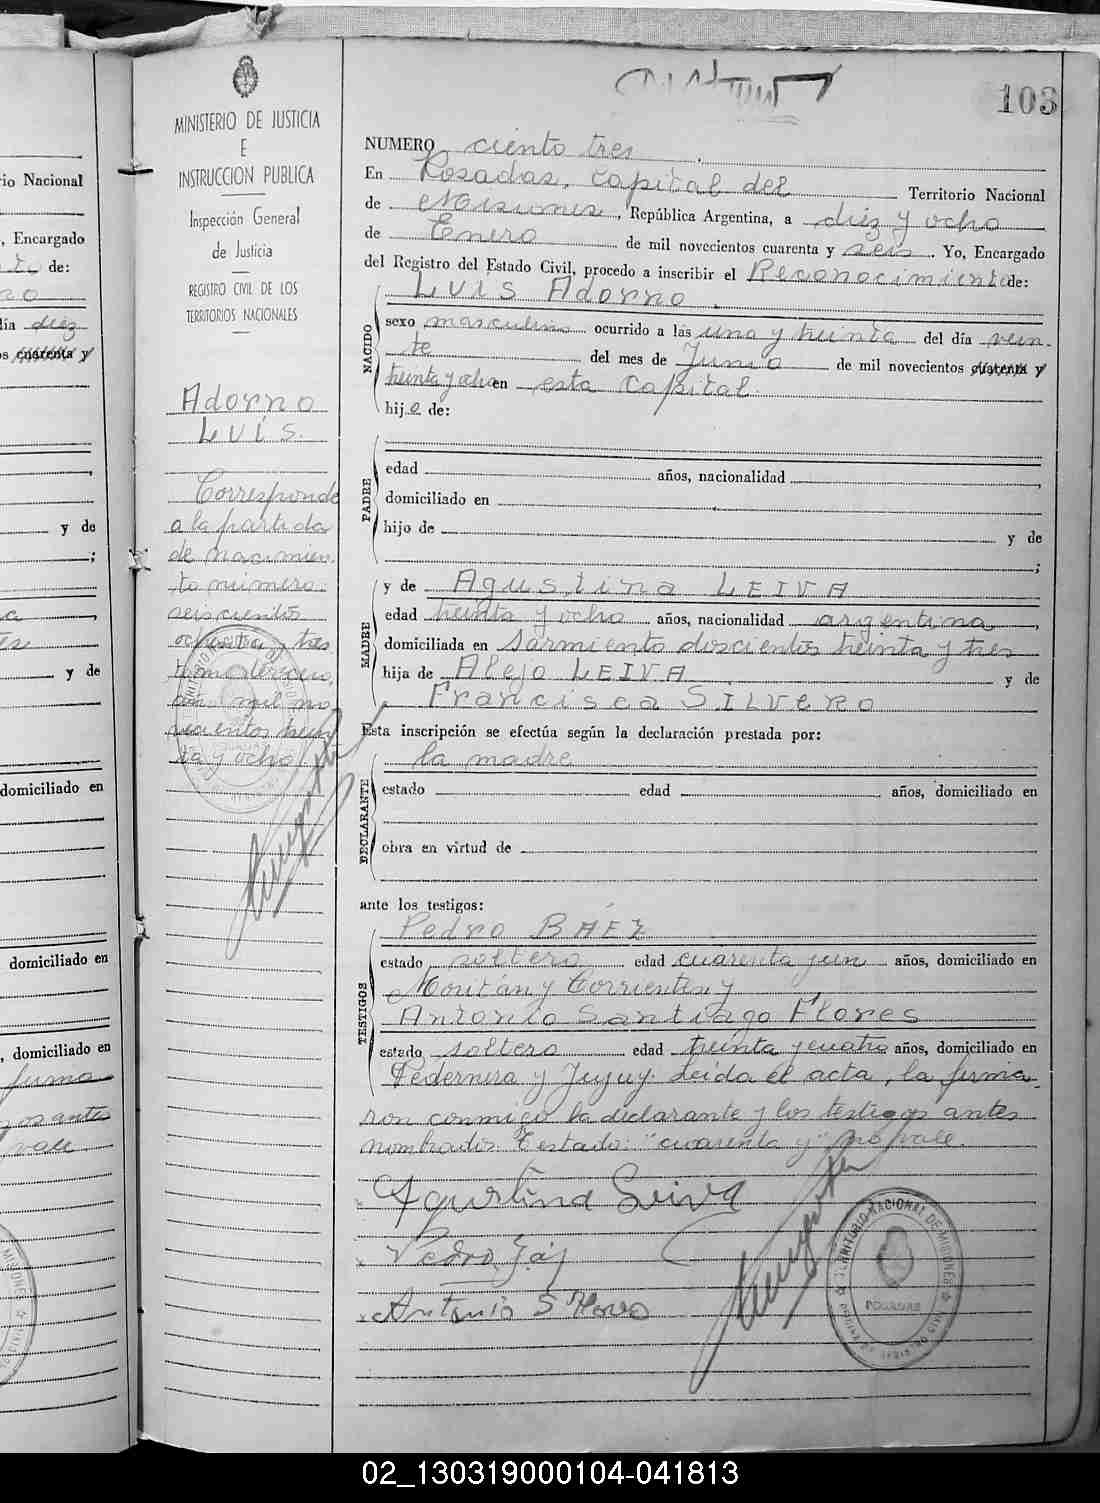 103
MINISTERIO DE JUSTICIA
E
INSTRUCCION PUBLICA
Inspección General
de Justicia
REGISTRO CIVIL DE LOS
TERRITORIOS NACIONALES
Adorno
LUIS.
Corresponde
a la partida
de nacimien
to número
seiscientos
ochenta y tres
tomo tercero,
año mil no
vecientos trein
ta y ocho
NUMERO ciento tres
En Posadas, capital del Territorio Nacional
de Misiones, República Argentina, a diez y ocho
de Enero de mil novecientos cuarenta y seis. Yo, Encargado
del Registro del Estado Civil, procedo a inscribir el Reconocimiento de:
NACIDO
LUIS Adorno.
sexo masculino ocurrido a las una y treinta del día vein-
te del mes de Junio de mil novecientos cuarenta y
treinta y ocho en esta capital.
hijo de:
PADRE
edad años, nacionalidad ,
domiciliado en
hijo de y de
;
MADRE
y de Agustina LEIVA
edad treinta y ocho años, nacionalidad argentina,
domiciliada en Sarmiento doscientos treinta y tres
hija de Alejo LEIVA y de
Francisca SILVERO
Esta inscripción se efectúa según la declaración prestada por:
DECLARANTE
la madre
estado edad años, domiciliado en
obra en virtud de
ante los testigos:
TESTIGOS
Pedro BÁEZ
estado soltero edad cuarenta y un años, domiciliado en
y Corrientes y
Antonio Santiago Flores
estado soltero edad treinta y cuatro años, domiciliado en
Pedernera y Jujuy. Leída el acta, la firma-
ron conmigo la declarante y los testigos antes
nombrados. Testado: "cuarenta y" no vale.
Agustina Leiva
Pedro
Antonio S Flores
TERRITORIO NACIONAL DE MISIONES
POSADAS
io Nacional
, Encargado
de:
no
día diez
s cuarenta y
,
y de
;
y de
domiciliado en
domiciliado en
, domiciliado en
firma
os antes
vale
02_130319000104-041813